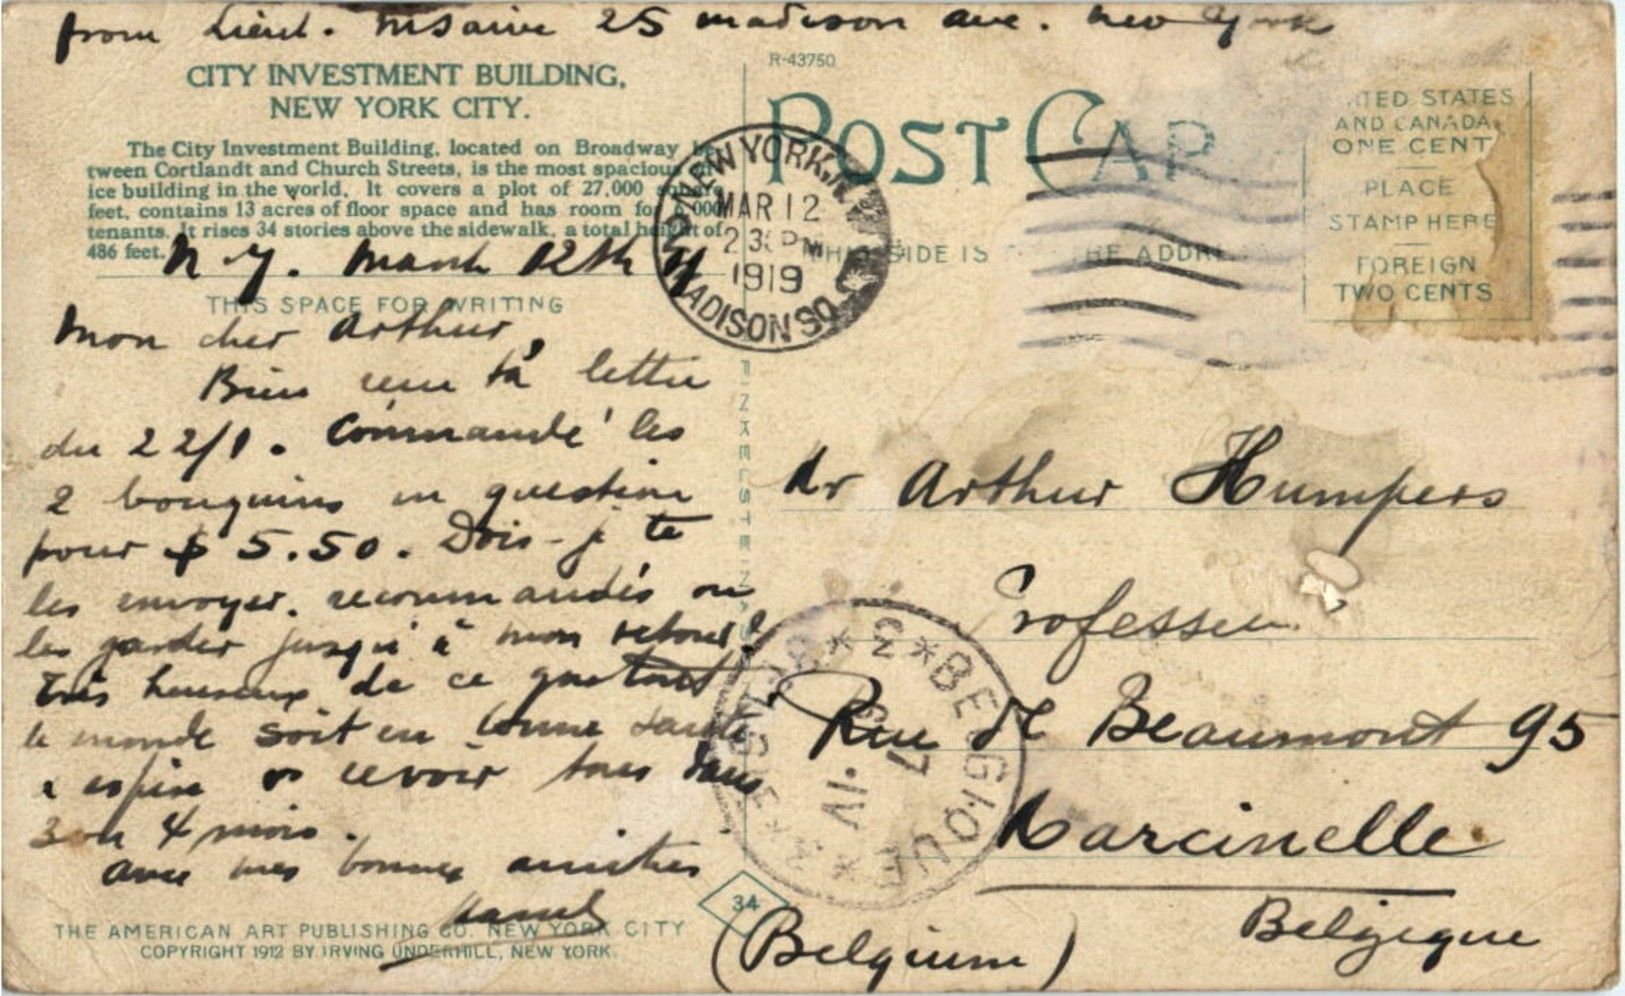 from Lieut. 25 madison ave. New York
R-43750
CITY INVESTMENT BUILDING,
NEW YORK CITY.
The City Investment Building, located on Broadway be
tween Cortlandt and Church Streets, is the most spacious
ice building in the world. It covers a plot of 27,000
feet, contains 13 acres of floor space and has room for 6,000
tenants. It rises 34 stories above the sidewalk, a total height of
486 feet.
N.Y. March 12th 19
THIS SPACE FOR WRITING
Mon cher Arthur,
Bien reçu ta lettre
du 22/1. Commandé les
2 bouquins en question
pour $ 5.50. Dois-je te
les envoyer recommandés ou
les garder jusqu'à mon retour?
Très heureux de ce que tout
le monde soit en bonne santé
espère revoir tous dans
3 ou 4 mois.
avec mes bonnes amitiés
THE AMERICAN ART PUBLISHING CO. NEW YORK CITY
COPYRIGHT 1912 BY IRVING UNDERHILL, NEW YORK.
POST CAR
NEW YORK, N.Y.
MAR 12
2 30 PM
1919
MADISON SQ.
THIS SIDE IS THE ADDR
UNITED STATES
AND CANADA
ONE CENT
PLACE
STAMP HERE
FOREIGN
TWO CENTS
FINKELSTEIN
Mr Arthur Humpers
Professeur
Rue de Beaumont 95
Marcinelle
Belgique
(Belgium)
34
3 * BELGIQUE *
IV